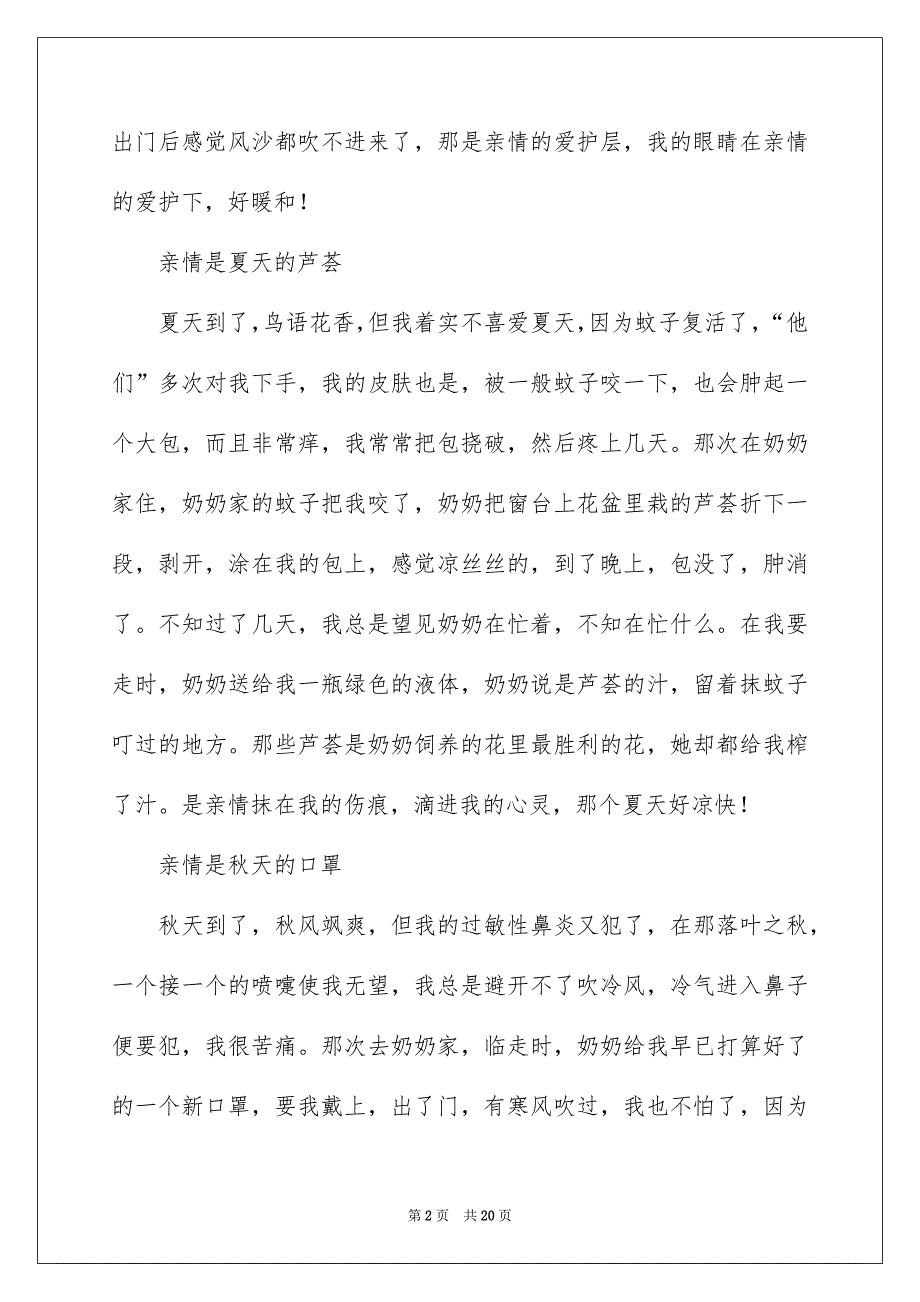 出门后感觉风沙都吹不进来了，那是亲情的爱护层，我的眼睛在亲情
的爱护下，好暖和！
亲情是夏天的芦荟
夏天到了，鸟语花香，但我着实不喜爱夏天，因为蚊子复活了，“他
们”多次对我下手，我的皮肤也是，被一般蚊子咬一下，也会肿起一
个大包，而且非常痒，我常常把包挠破，然后疼上几天。那次在奶奶
家住，奶奶家的蚊子把我咬了，奶奶把窗台上花盆里栽的芦荟折下一
段，剥开，涂在我的包上，感觉凉丝丝的，到了晚上，包没了，肿消
了。不知过了几天，我总是望见奶奶在忙着，不知在忙什么。在我要
走时，奶奶送给我一瓶绿色的液体，奶奶说是芦荟的汁，留着抹蚊子
叮过的地方。那些芦荟是奶奶饲养的花里最胜利的花，她却都给我榨
了汁。是亲情抹在我的伤痕，滴进我的心灵，那个夏天好凉快！
亲情是秋天的口罩
秋天到了，秋风飒爽，但我的过敏性鼻炎又犯了，在那落叶之秋，
一个接一个的喷嚏使我无望，我总是避开不了吹冷风，冷气进入鼻子
便要犯，我很苦痛。那次去奶奶家，临走时，奶奶给我早已打算好了
的一个新口罩，要我戴上，出了门，有寒风吹过，我也不怕了，因为
第 2 页 共 20 页